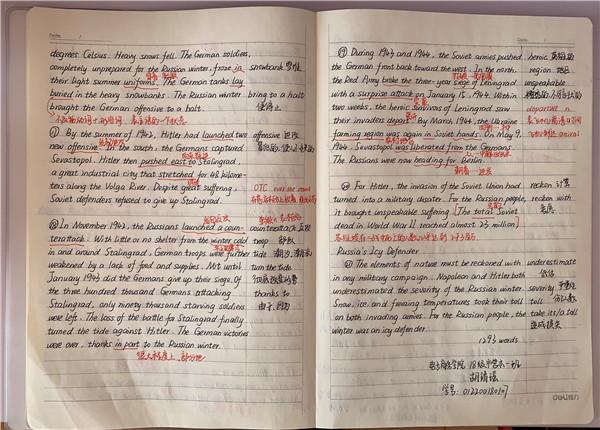 degrees Celsius. Heavy snows fell. The German soldiers,
completely unprepared for the Russian winter, froze in snowbank 雪堆
their light summer uniforms. The German tanks lay
buried in the heavy snowbanks. The Russian winter bring to a halt
brought the German offensive to a halt. 使停止
By the summer of 1942, Hitler had launched two offensive 进攻
new offensive. In the south, the Germans captured
Sevastopol. Hitler then pushed east to Stalingrad,
a great industrial city that stretched for 48 kilome-
ters along the Volga River. Despite great suffering,
Soviet defenders refused to give up Stalingrad.
⑱ In November 1942, the Russians launched a coun-
terattack. With little or no shelter from the winter cold troop 部队
in and around Stalingrad, German troops were further tide
weakened by a lack of food and supplies. Not until turn the tide
January 1943 did the Germans give up their siege. Of
the three hundred thousand Germans attacking thanks to
Stalingrad, only ninety thousand starving soldiers 由于,因为
were left. The loss of the battle for Stalingrad finally
turned the tide against Hitler. The German victories
were over, thanks in part to the Russian winter.
很大程度上,部分地
⑲ During 1943 and 1944, the Soviet armies pushed heroic 英雄的
the German front back toward the west. In the north, region 地区
the Red Army broke the three-year siege of Leningrad unspeakable
with a surprise attack on January 15, 1944. Within
two weeks, the heroic survivors of Leningrad saw
their invaders depart. By March 1944, the Ukraine
farming region was again in Soviet hands. On May 9,
1944, Sevastopol was liberated from the Germans.
The Russians were now heading for Berlin.
⑳ For Hitler, the invasion of the Soviet Union had reckon 计算
turned into a military disaster. For the Russian people, reckon with
it brought unspeakable suffering. The total Soviet
dead in World War II reached almost 23 million.
Russia's Icy Defender
The elements of nature must be reckoned with underestimate
in any military campaign. Napoleon and Hitler both 低估
underestimated the severity of the Russian winter. severity
Snow, ice, and freezing temperatures took their toll toll
on both invading armies. For the Russian people, the take its/a toll
winter was an icy defender. 造成损失
1293 words